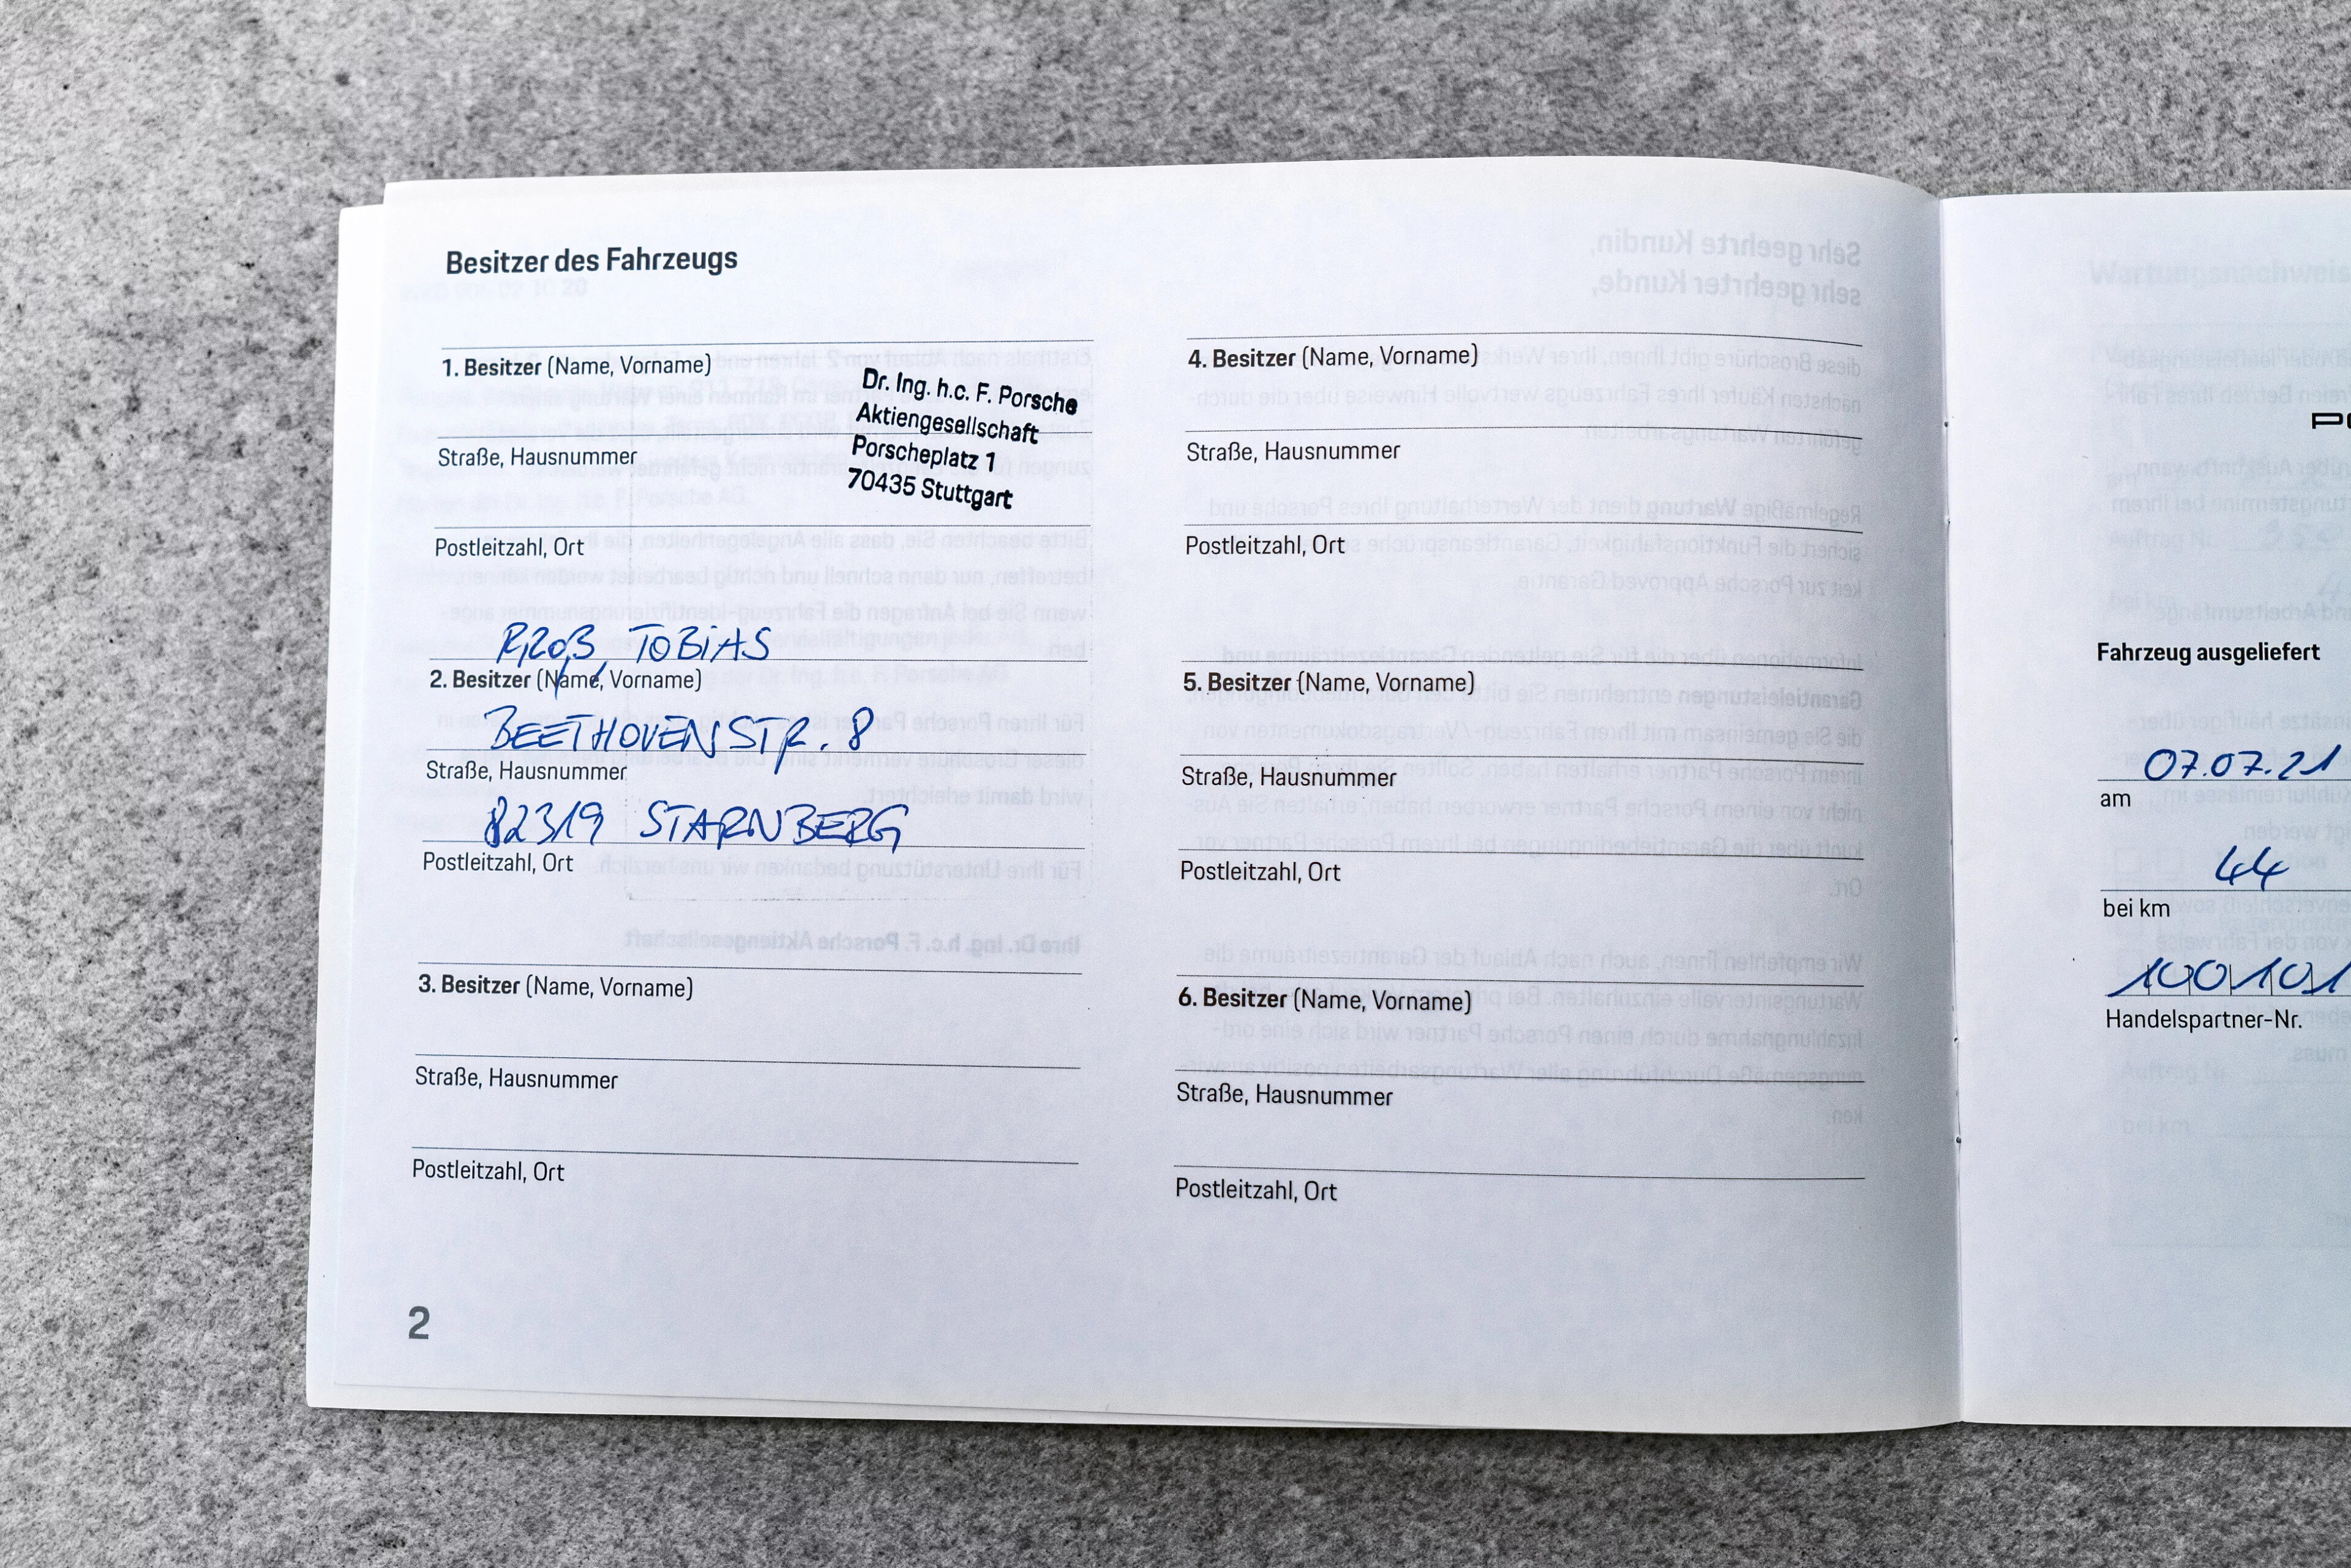 Besitzer des Fahrzeugs
1. Besitzer (Name, Vorname)
Dr. Ing. h.c. F. Porsche
Aktiengesellschaft
Porscheplatz 1
70435 Stuttgart
Straße, Hausnummer
Postleitzahl, Ort
TOBIAS
2. Besitzer (Name, Vorname)
BEETHOVENSTR. 8
Straße, Hausnummer
82319 STARNBERG
Postleitzahl, Ort
3. Besitzer (Name, Vorname)
Straße, Hausnummer
Postleitzahl, Ort
2
4. Besitzer (Name, Vorname)
Straße, Hausnummer
Postleitzahl, Ort
5. Besitzer (Name, Vorname)
Straße, Hausnummer
Postleitzahl, Ort
6. Besitzer (Name, Vorname)
Straße, Hausnummer
Postleitzahl, Ort
Fahrzeug ausgeliefert
07.07.21
am
44
bei km
100101
Handelspartner-Nr.